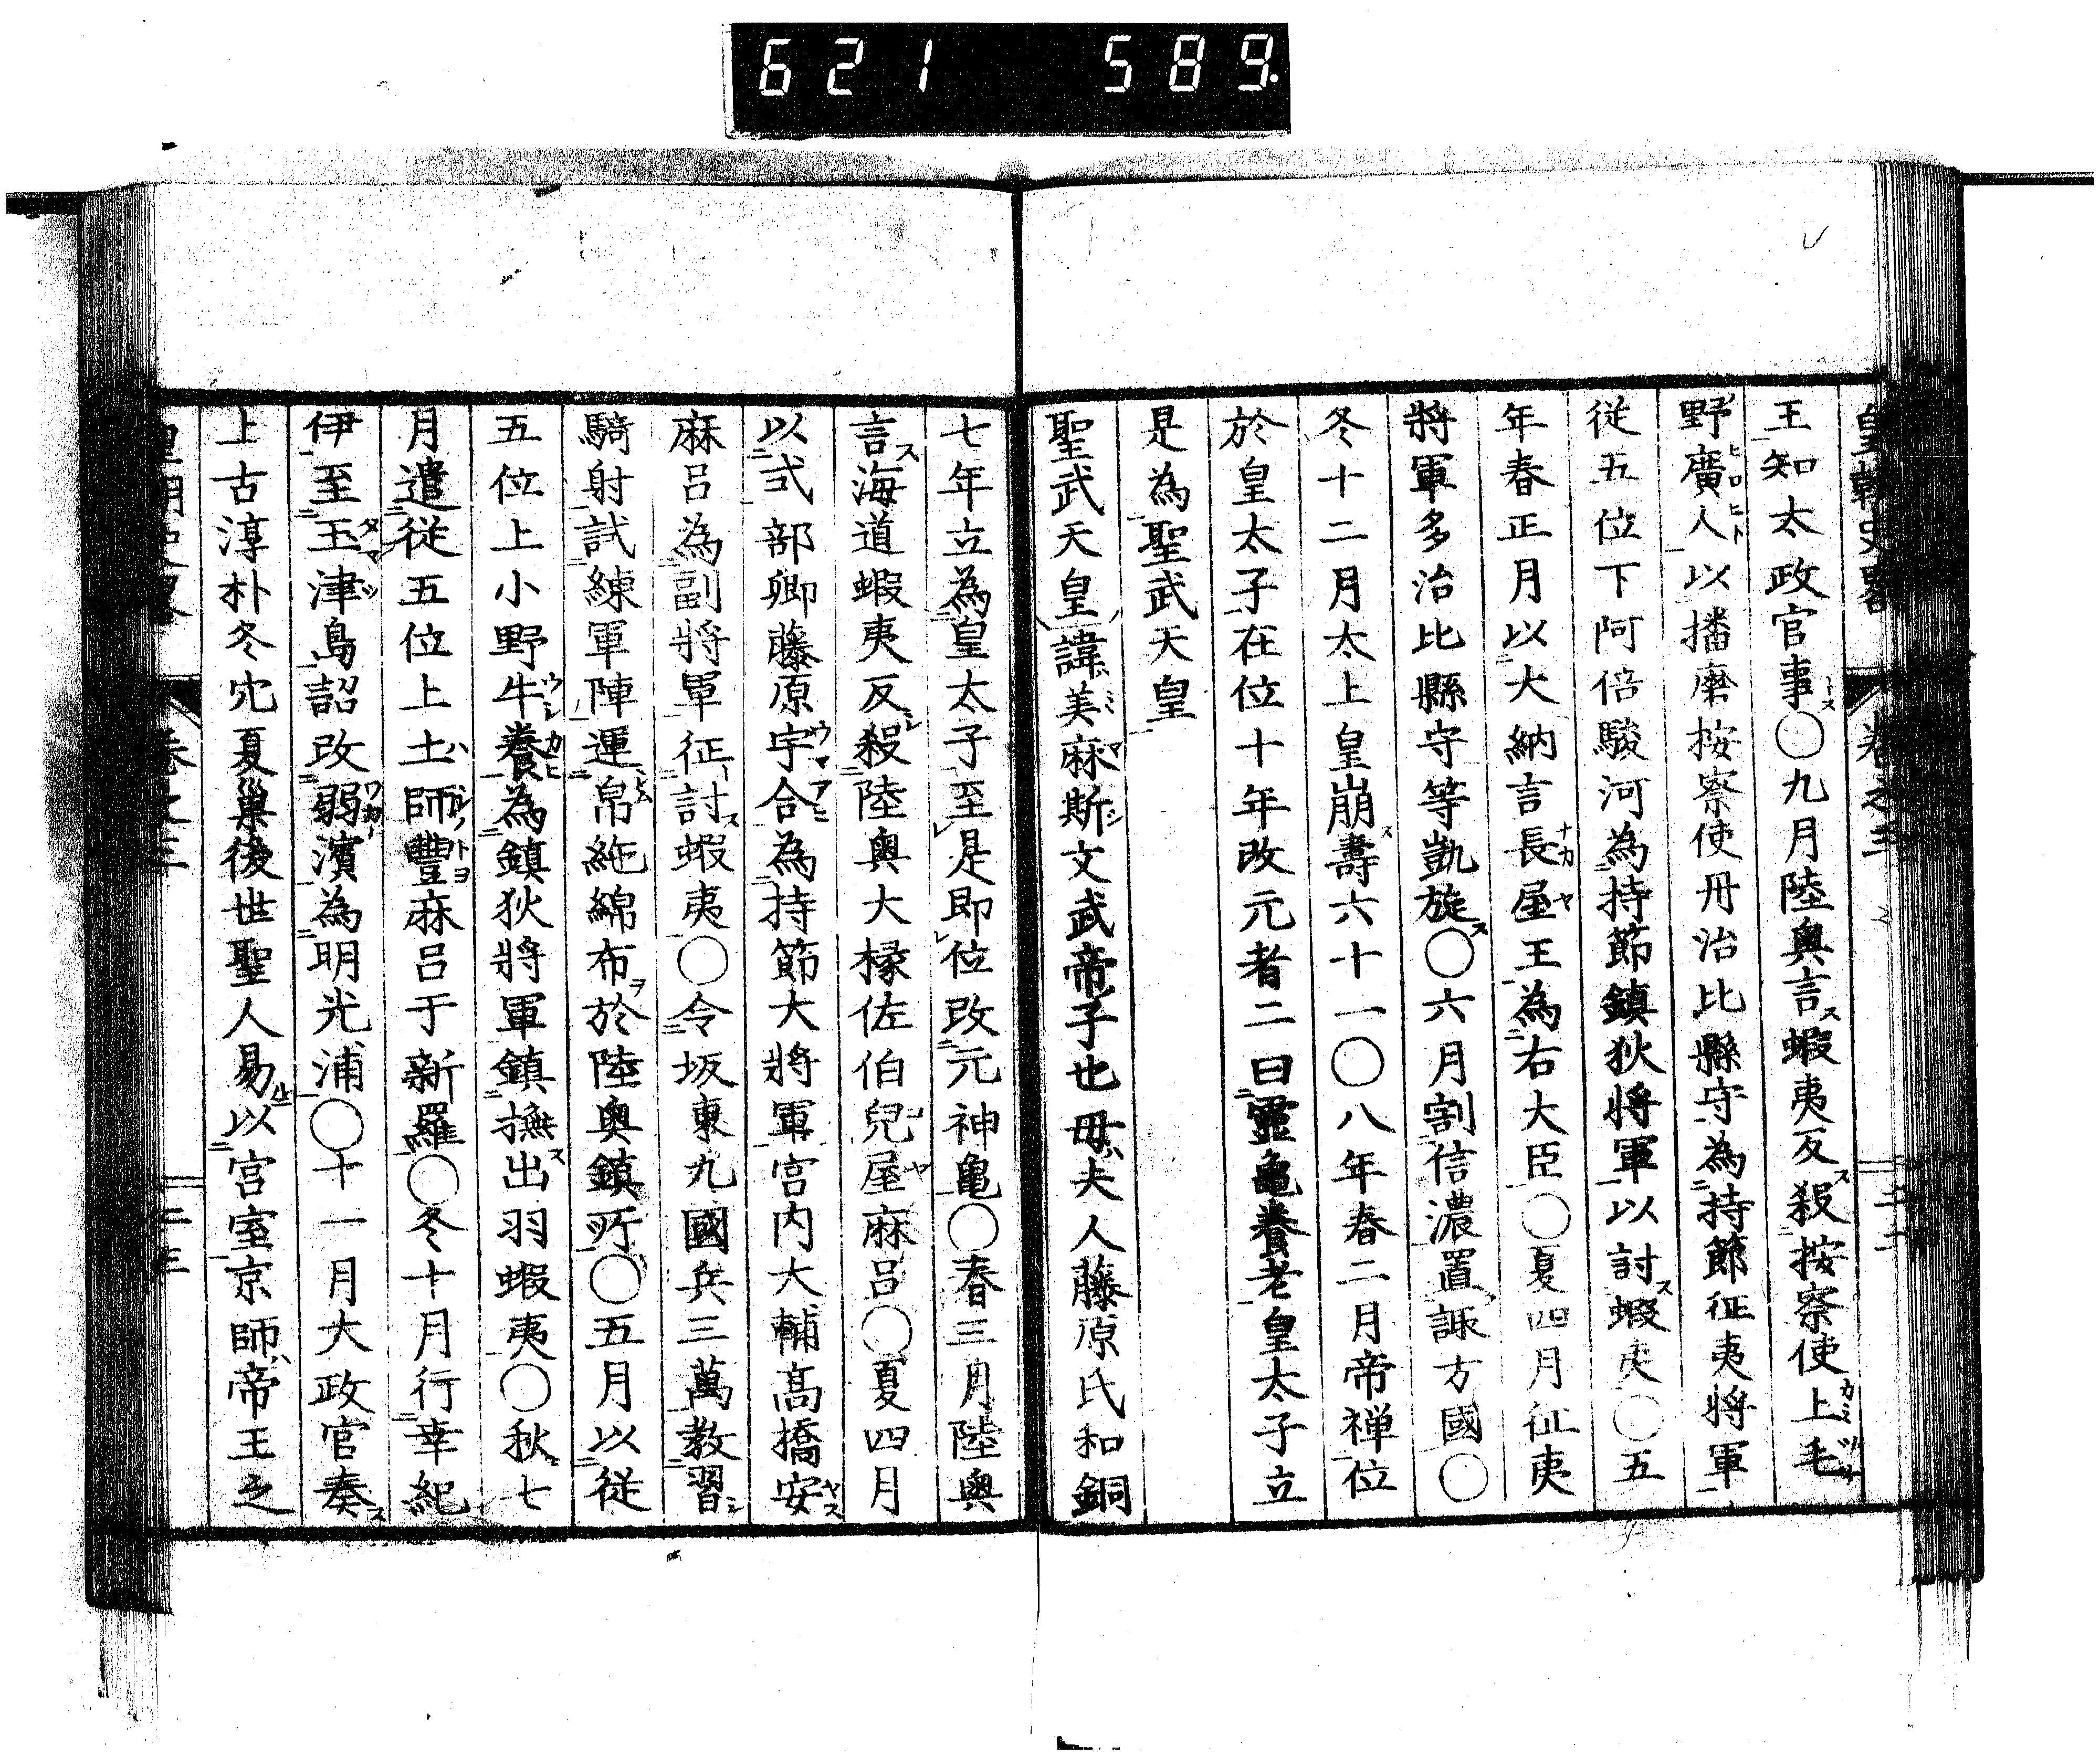 621 589.
皇朝史畧 卷之三
王知太政官事〇九月陸奥言蝦夷反殺按察使上毛
野廣人以播磨按察使丹治比縣守為持節征夷將軍
従五位下阿倍駿河為持節鎮狄將軍以討蝦夷〇五
年春正月以大納言長屋王為右大臣〇夏四月征夷
將軍多治比縣守等凱旋〇六月割信濃置諏方國〇
冬十二月太上皇崩壽六十一〇八年春二月帝禅位
於皇太子在位十年改元者二曰靈亀養老皇太子立
是為聖武天皇
聖武天皇諱美麻斯文武帝子也母夫人藤原氏和銅
七年立為皇太子至是即位改元神亀〇春三月陸奥
言海道蝦夷反殺陸奥大椽佐伯兒屋麻呂〇夏四月
以式部卿藤原宇合為持節大將軍宮内大輔高橋安
麻呂為副將軍征討蝦夷〇令坂東九國兵三萬教習
騎射試練軍陣運帛絁綿布於陸奥鎮所〇五月以従
五位上小野牛養為鎮狄將軍鎮撫出羽蝦夷〇秋七
月遣従五位上土師豐麻呂于新羅〇冬十月行幸紀
伊至玉津島詔改弱濱為明光浦〇十一月大政官奏
上古淳朴冬穴夏巢後世聖人易以宮室京師帝王之
卷之三 二十三